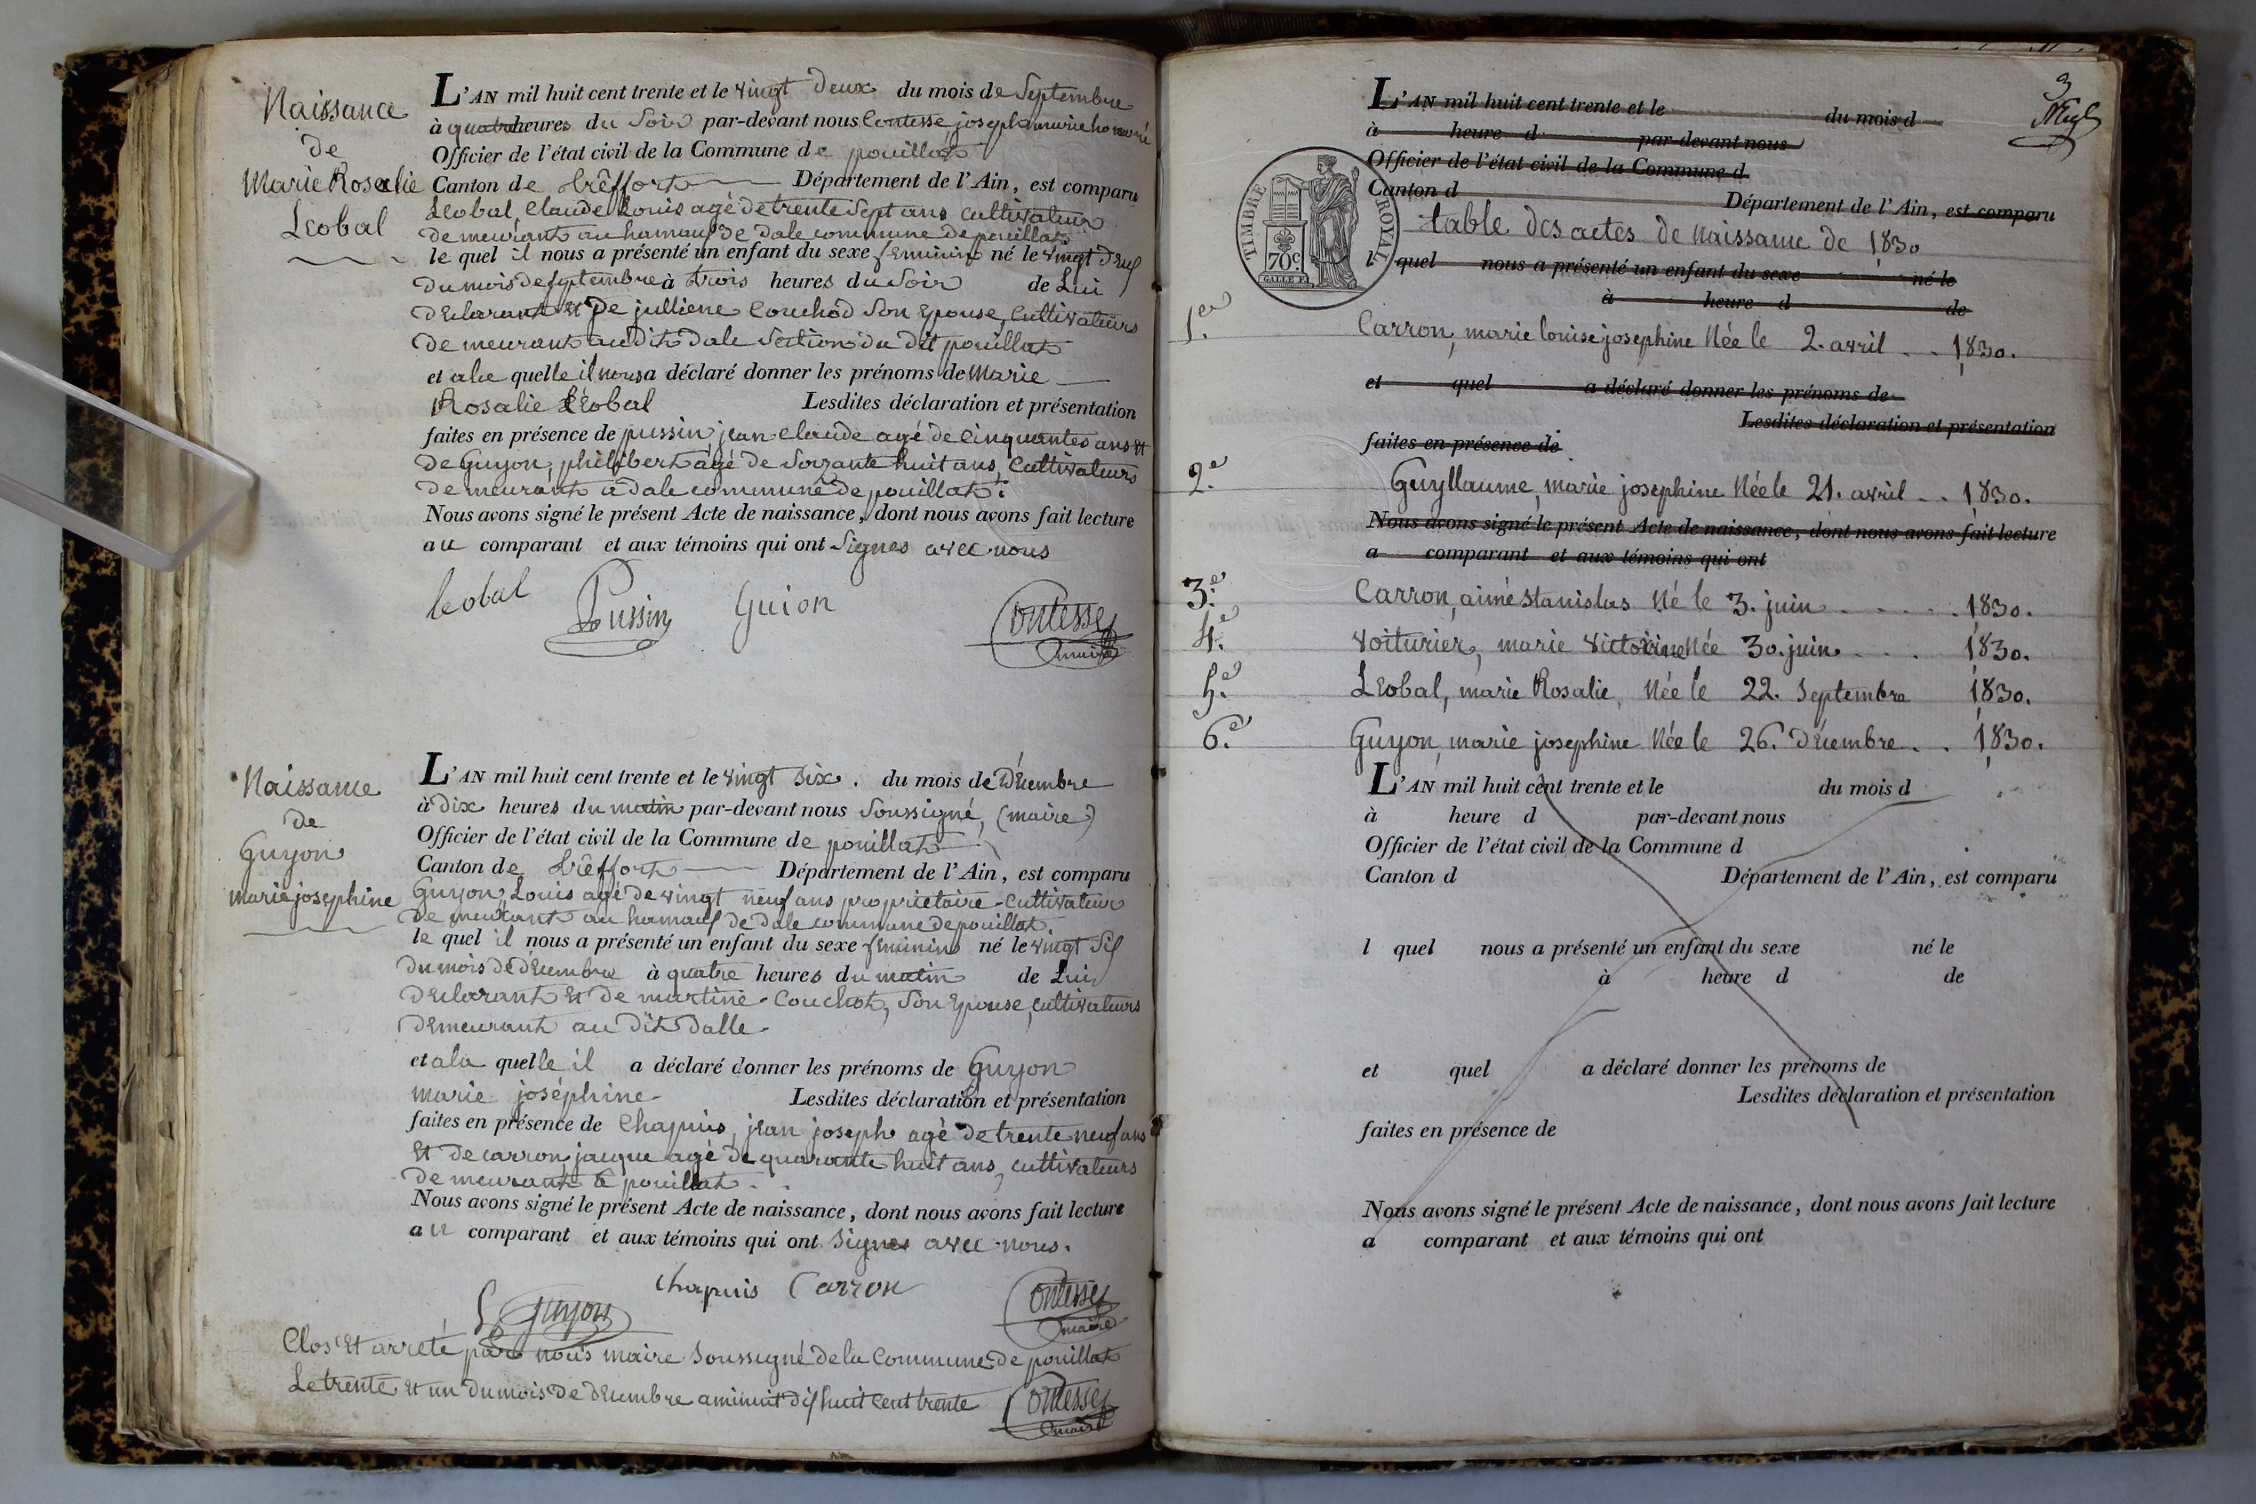 Naissance
de
Marie Rosalie
Leobal
L'AN mil huit cent trente et le vingt deux du mois de Septembre
à quatre heures du Soir par-devant nous Contesse, joseph marie honoré
Officier de l'état civil de la Commune de pouillat
Canton de trêffort Département de l'Ain, est comparu
Leobal, Claude Louis agé de trente Sept ans cultivateur
demeurant au hamau de dale commune de pouillat
le quel il nous a présenté un enfant du sexe feminin né le vingt deux
du mois de septembre à trois heures du Soir de Lui
declarant et de julliene Couchod Son Epouse, Cultivateurs
demeurant audit dale Section du dit pouillat
et a la quelle il nous a déclaré donner les prénoms de Marie
Rosalie Léobal Lesdites déclaration et présentation
faites en présence de pussin jean claude agé de Cinquantes ans et
de Guyon, philibert agé de Soixante huit ans, Cultivateurs
demeurant à dale commune de pouillat.
Nous avons signé le présent Acte de naissance, dont nous avons fait lecture
au comparant et aux témoins qui ont Signes avec nous
leobal Pussin Guion Contesse
maire
Naissance
de
Guyon
marie josephine
L'AN mil huit cent trente et le vingt six. du mois de Décembre
à Dix heures du matin par-devant nous Soussigné, (maire)
Officier de l'état civil de la Commune de pouillat
Canton de trêffort Département de l'Ain, est comparu
Guyon, Louis agé de vingt neuf ans proprietaire-Cultivateur
demeurant au hamau de dale commune de pouillat
le quel il nous a présenté un enfant du sexe feminin né le vingt Six
du mois de décembre à quatre heures du matin de Lui
declarant et de martine Couchot, Son Epouse, cultivateurs
demeurant au dit dalle
et a la quelle il a déclaré donner les prénoms de Guyon
marie joséphine Lesdites déclaration et présentation
faites en présence de Chapuis, jean joseph agé de trente neuf ans
Et de carron jacque agé de quarante huit ans, cultivateurs
demeurant à pouillat
Nous avons signé le présent Acte de naissance, dont nous avons fait lecture
au comparant et aux témoins qui ont Signes avec nous.
L Guyon Chapuis Carron Contesse
maire
Clos Et arreté par nous maire Soussigné de la Commune de pouillat
Le trente et un du mois de decembre a minuit dix huit cent trente Contesse
maire
3
L'AN mil huit cent trente et le du mois d
à heure d par-devant nous
Officier de l'état civil de la Commune d
Canton d Département de l'Ain, est comparu
TIMBRE ROYAL
70c.
table des actes de naissance de 1830
l quel nous a présenté un enfant du sexe né le
à heure d de
1er. Carron, marie louise josephine Née le 2. avril . . 1830.
et quel a déclaré donner les prénoms de
Lesdites déclaration et présentation
faites en présence de
2.e Guyllaume, marie josephine Née le 21. avril . . 1830.
Nous avons signé le présent Acte de naissance, dont nous avons fait lecture
a comparant et aux témoins qui ont
3.e Carron, aimé stanislas Né le 3. juin . . . . 1830.
4.e Voiturier, marie Victorine Née 30. juin . . . 1830.
5.e Leobal, marie Rosalie, Née le 22. Septembre 1830.
6.e Guyon, marie josephine Née le 26. Décembre . . 1830.
L'AN mil huit cent trente et le du mois d
à heure d par-devant nous
Officier de l'état civil de la Commune d
Canton d Département de l'Ain, est comparu
l quel nous a présenté un enfant du sexe né le
à heure d de
et quel a déclaré donner les prénoms de
Lesdites déclaration et présentation
faites en présence de
Nous avons signé le présent Acte de naissance, dont nous avons fait lecture
a comparant et aux témoins qui ont